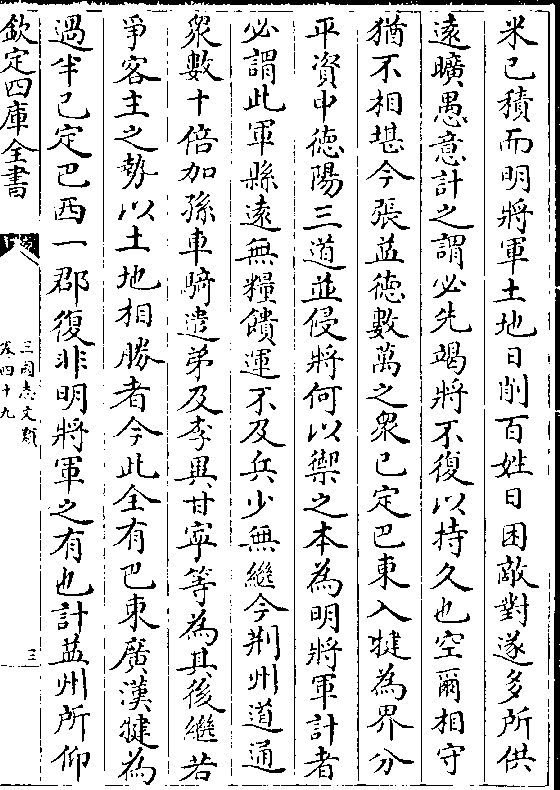 米已積而明將軍土地日削百姓日困敵對遂多所供
遠曠愚意計之謂必先竭將不復以持久也空爾相守
猶不相堪今張益德數萬之衆已定巴東入犍為界分
平資中德陽三道並侵將何以禦之本為明將軍計者
必謂此軍縣遠無糧饋運不及兵少無繼今荆州道通
衆數十倍加孫車騎遣弟及李異甘寧等為其後繼若
爭客主之勢以土地相勝者今此全有巴東廣漢犍為
過半已定巴西一郡復非明將軍之有也計益州所仰
欽定四庫全書
三國志文類
卷四十九
三